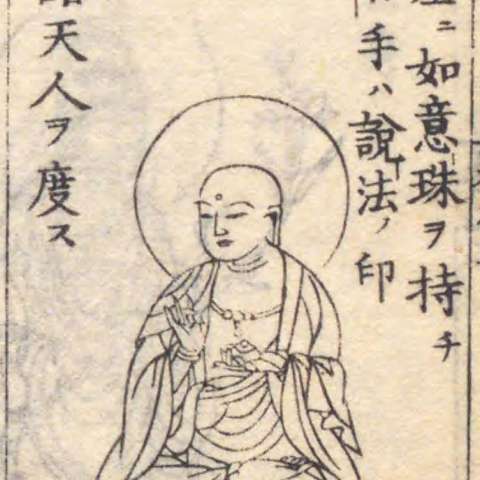 ニ如意珠ヲ持チ
手ハ說法ノ印
天人ヲ度ス